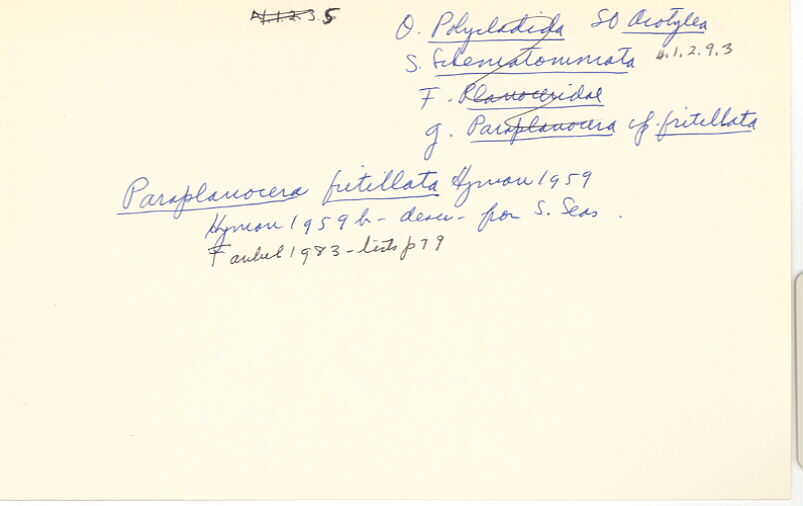 4.1.2.3.5
O. Polycladida SO Acotylea
S. Schematommata 4.1.2.9.3
F. Planoceridae
g. Paraplanocera cf. fritillata
Paraplanocera fritillata Hyman 1959
Hyman 1959 b - descr - from S. Seas.
Faubel 1983 - lists p 79